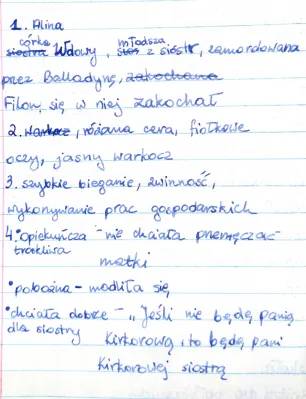 1. Alina
córka młodsza
siostra Wdowy, sios z sióstr, zamordowana
przez Balladynę, zakochana
Filon się w niej zakochał
2. warkocz, różana cera, fiołkowe
oczy, jasny warkocz
3. szybkie bieganie, zwinność,
wykonywanie prac gospodarskich
4. •opiekuńcza - nie chciała przemęczać
troskliwa matki
•pobożna - modliła się
•chciała dobrze - "Jeśli nie będę panią
dla siostry Kirkorową, to będę pani
Kirkorowej siostrą